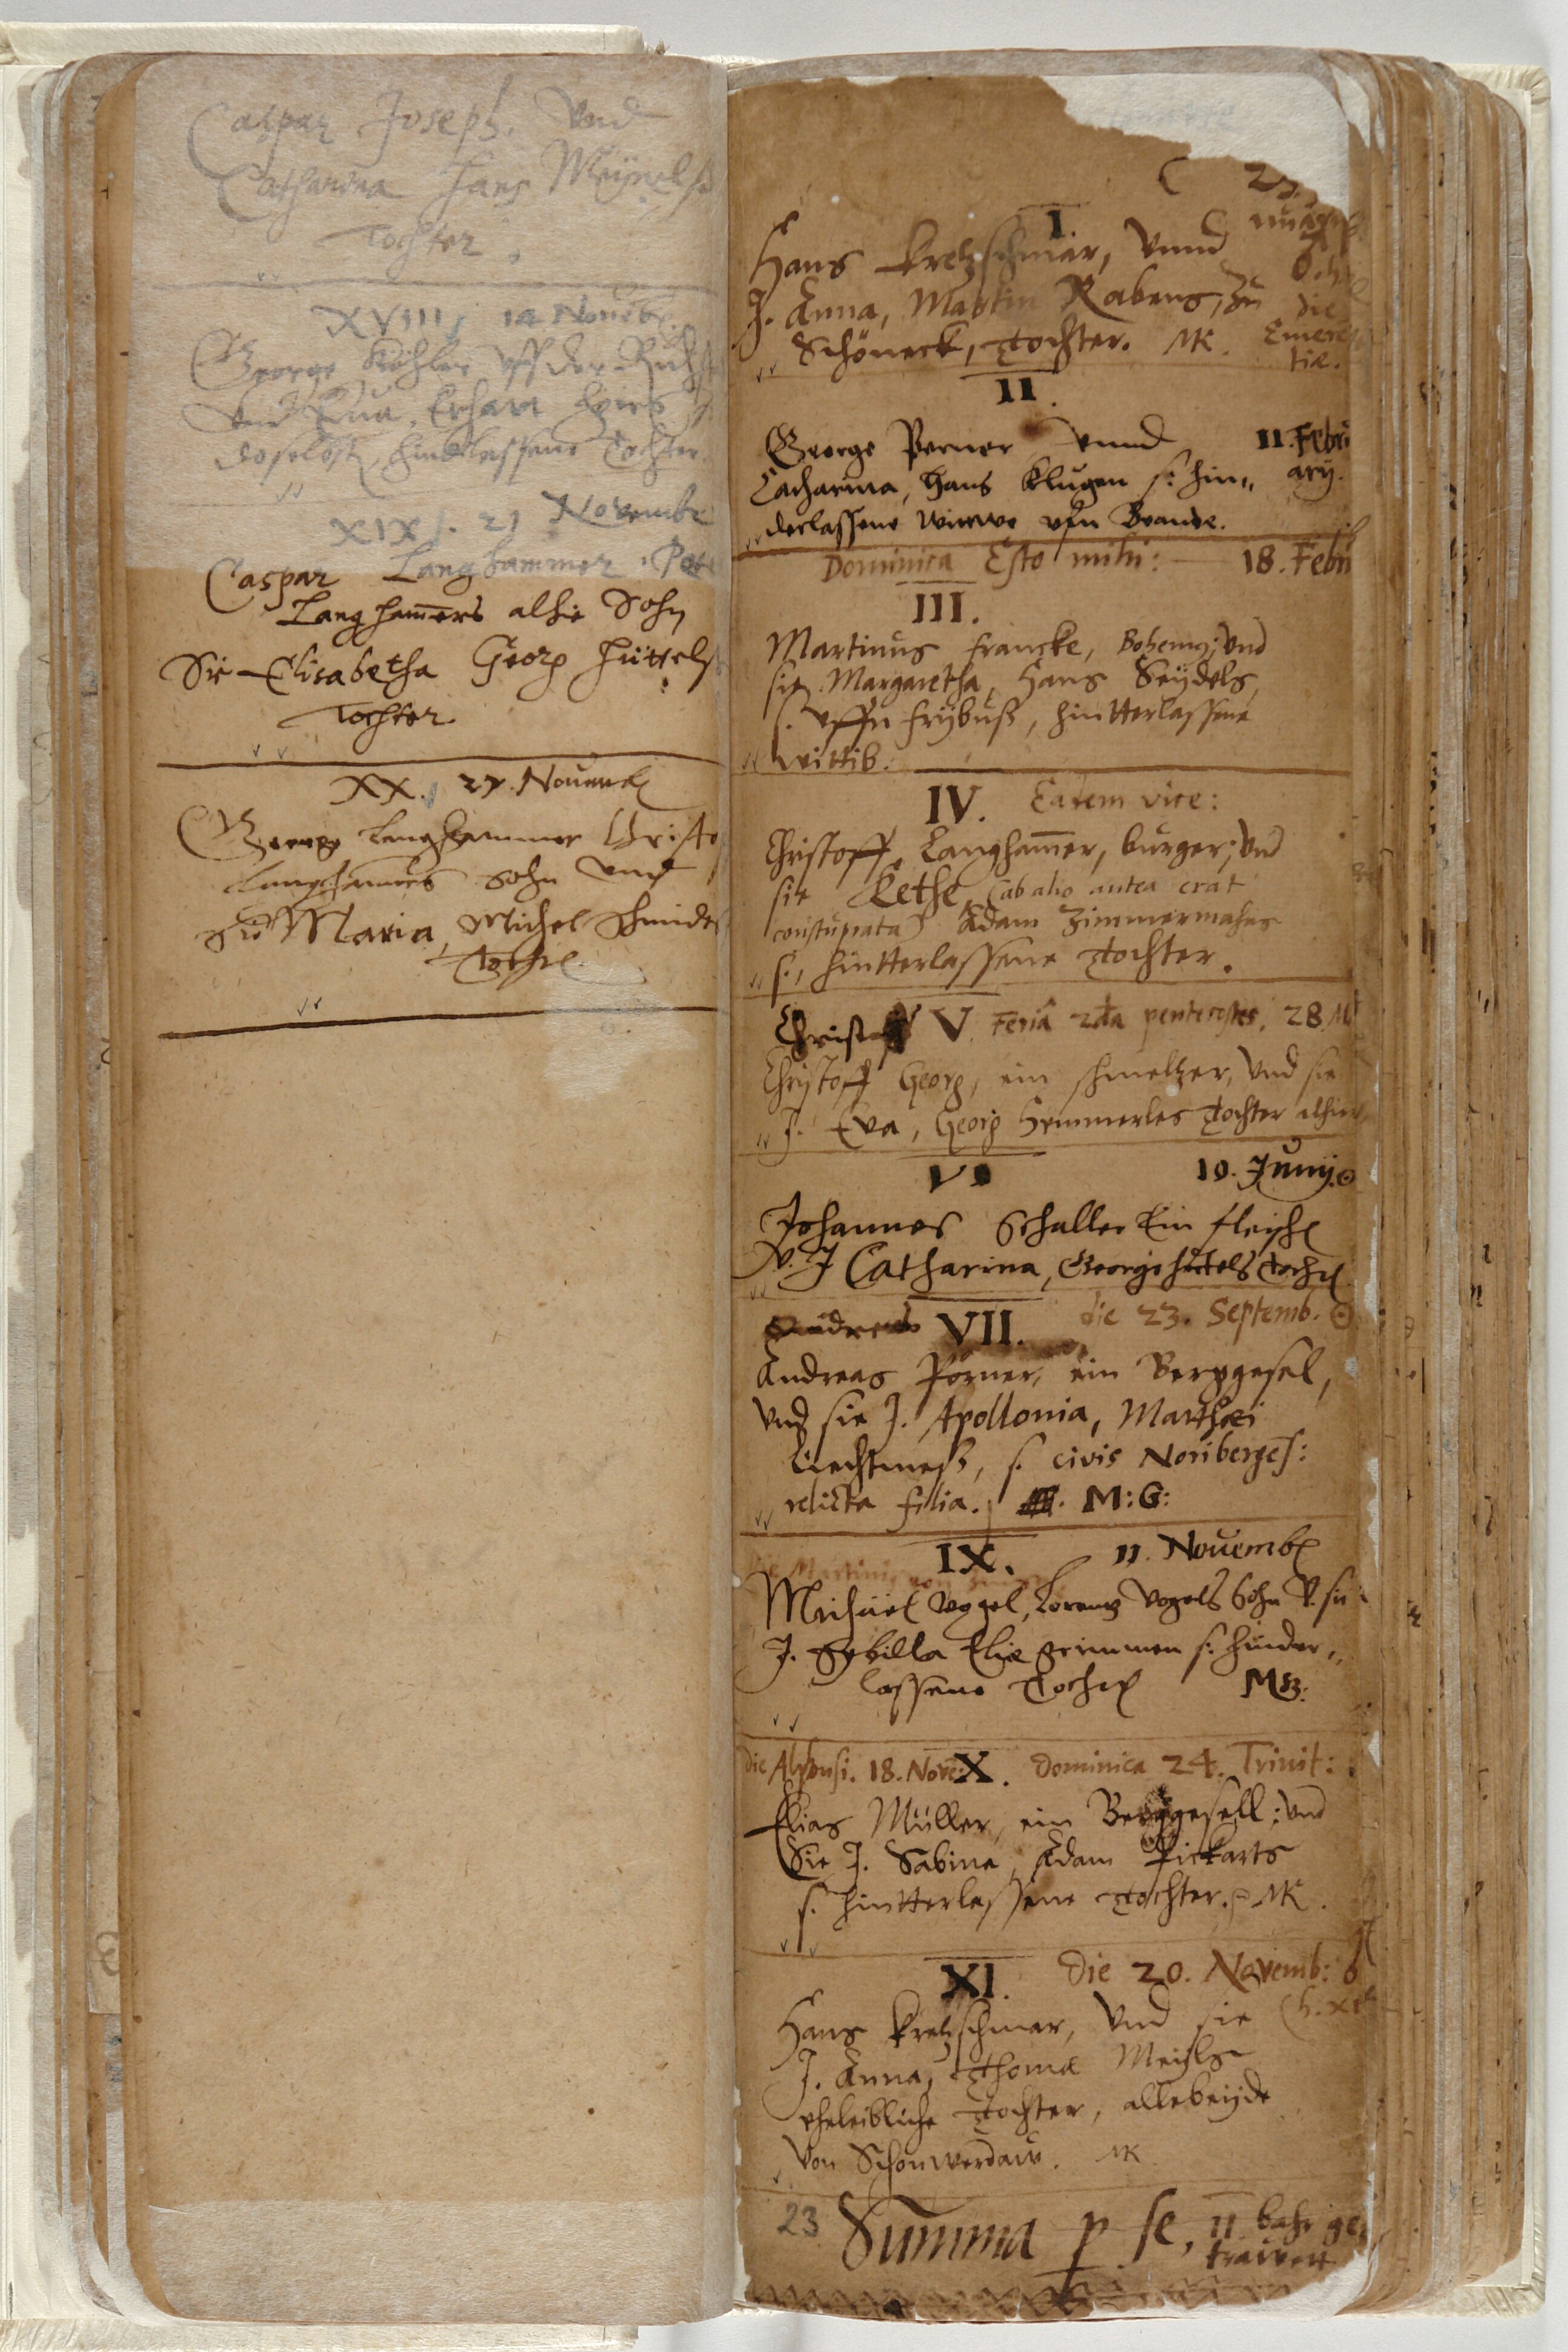 Caspar Joseph. Vnd
Catharina Hans Meÿnels
Tochter.
XVIII. 14 Nouēb.
George Köhler vff der
vnd Eua, Erhart
daselbst, hindlassene Tochter.
XIX. 21 Novembr
Caspar Langhammer, Pet
Langham̄ers alhie Sohn
Sie Elisabetha Georg Hüttels
Tochter
XX. 27. Nouemb
George Langhammer Christo
Langhamers Sohn vnd
sie Maria, Michel Schmides
Tochter.
I.
Hans Kretzschmar, Vnnd
J. Anna, Martin Rabens, Zu die
Schöneck, Tochter. MK. Emeren
tiæ.
II.
George Perner vnnd II. Febru
Catharina, Hans Klugen s: hin„ arÿ.
derlassene Witwe vfn Brande.
Dominica Esto mihi: 18. Febr
III.
Martinus Francke, Bohemus; Vnd
sie Margaretha, Hans Seÿdels,
s. vffn Frÿbuß, hintterlassene
wittib.
IV. Eadem vice:
Christoff Langham̄er, burger; vnd
sie Kethe, (ab alio antea erat
constuprata) Adam Zimmermahns
s., hintterlassene Tochter.
Christoff V. Feriâ 2da pentecostes, 28. M
Christoff Georg, ein schmeltzer, Vnd sie
J. Eva, Georg Hemmerles Tochter alhier
VI 10. Junÿ. ☉
Johannes Schaller Ein fleischer
V. J Catharina, Georg Hüttels Tochter
Andreas VII. die 23. Septemb. ☉
Andreas Pörner, ein Berggesel,
Vnd sie J. Apollonia, Matthæi
Liechtmeß, s. civis Noribergēs:
relicta filia. M:G:
IX. 11. Nouemb
die Martini
Michael Vogel, Lorentz Vogels Sohn V. sie
J. Sybilla Eliæ Grimmen s: hinder„
lassene Tochter MG:
die Alphonsi. 18. Nove: X. Dominica 24. Trinit:
Elias Müller, ein Berggesell; vnd
Sie J. Sabina, Adam Pickarts
s. hintterlassene Tochter. MK.
XI. Die 20. Novemb:
Hans Kretzschmar, Vnd sie
J. Anna, Thomæ Meisels
eheleibliche Tochter, allebeÿde
von Schonwerdaw. MK
23 Summa p se, 11 bahr ge
trawett